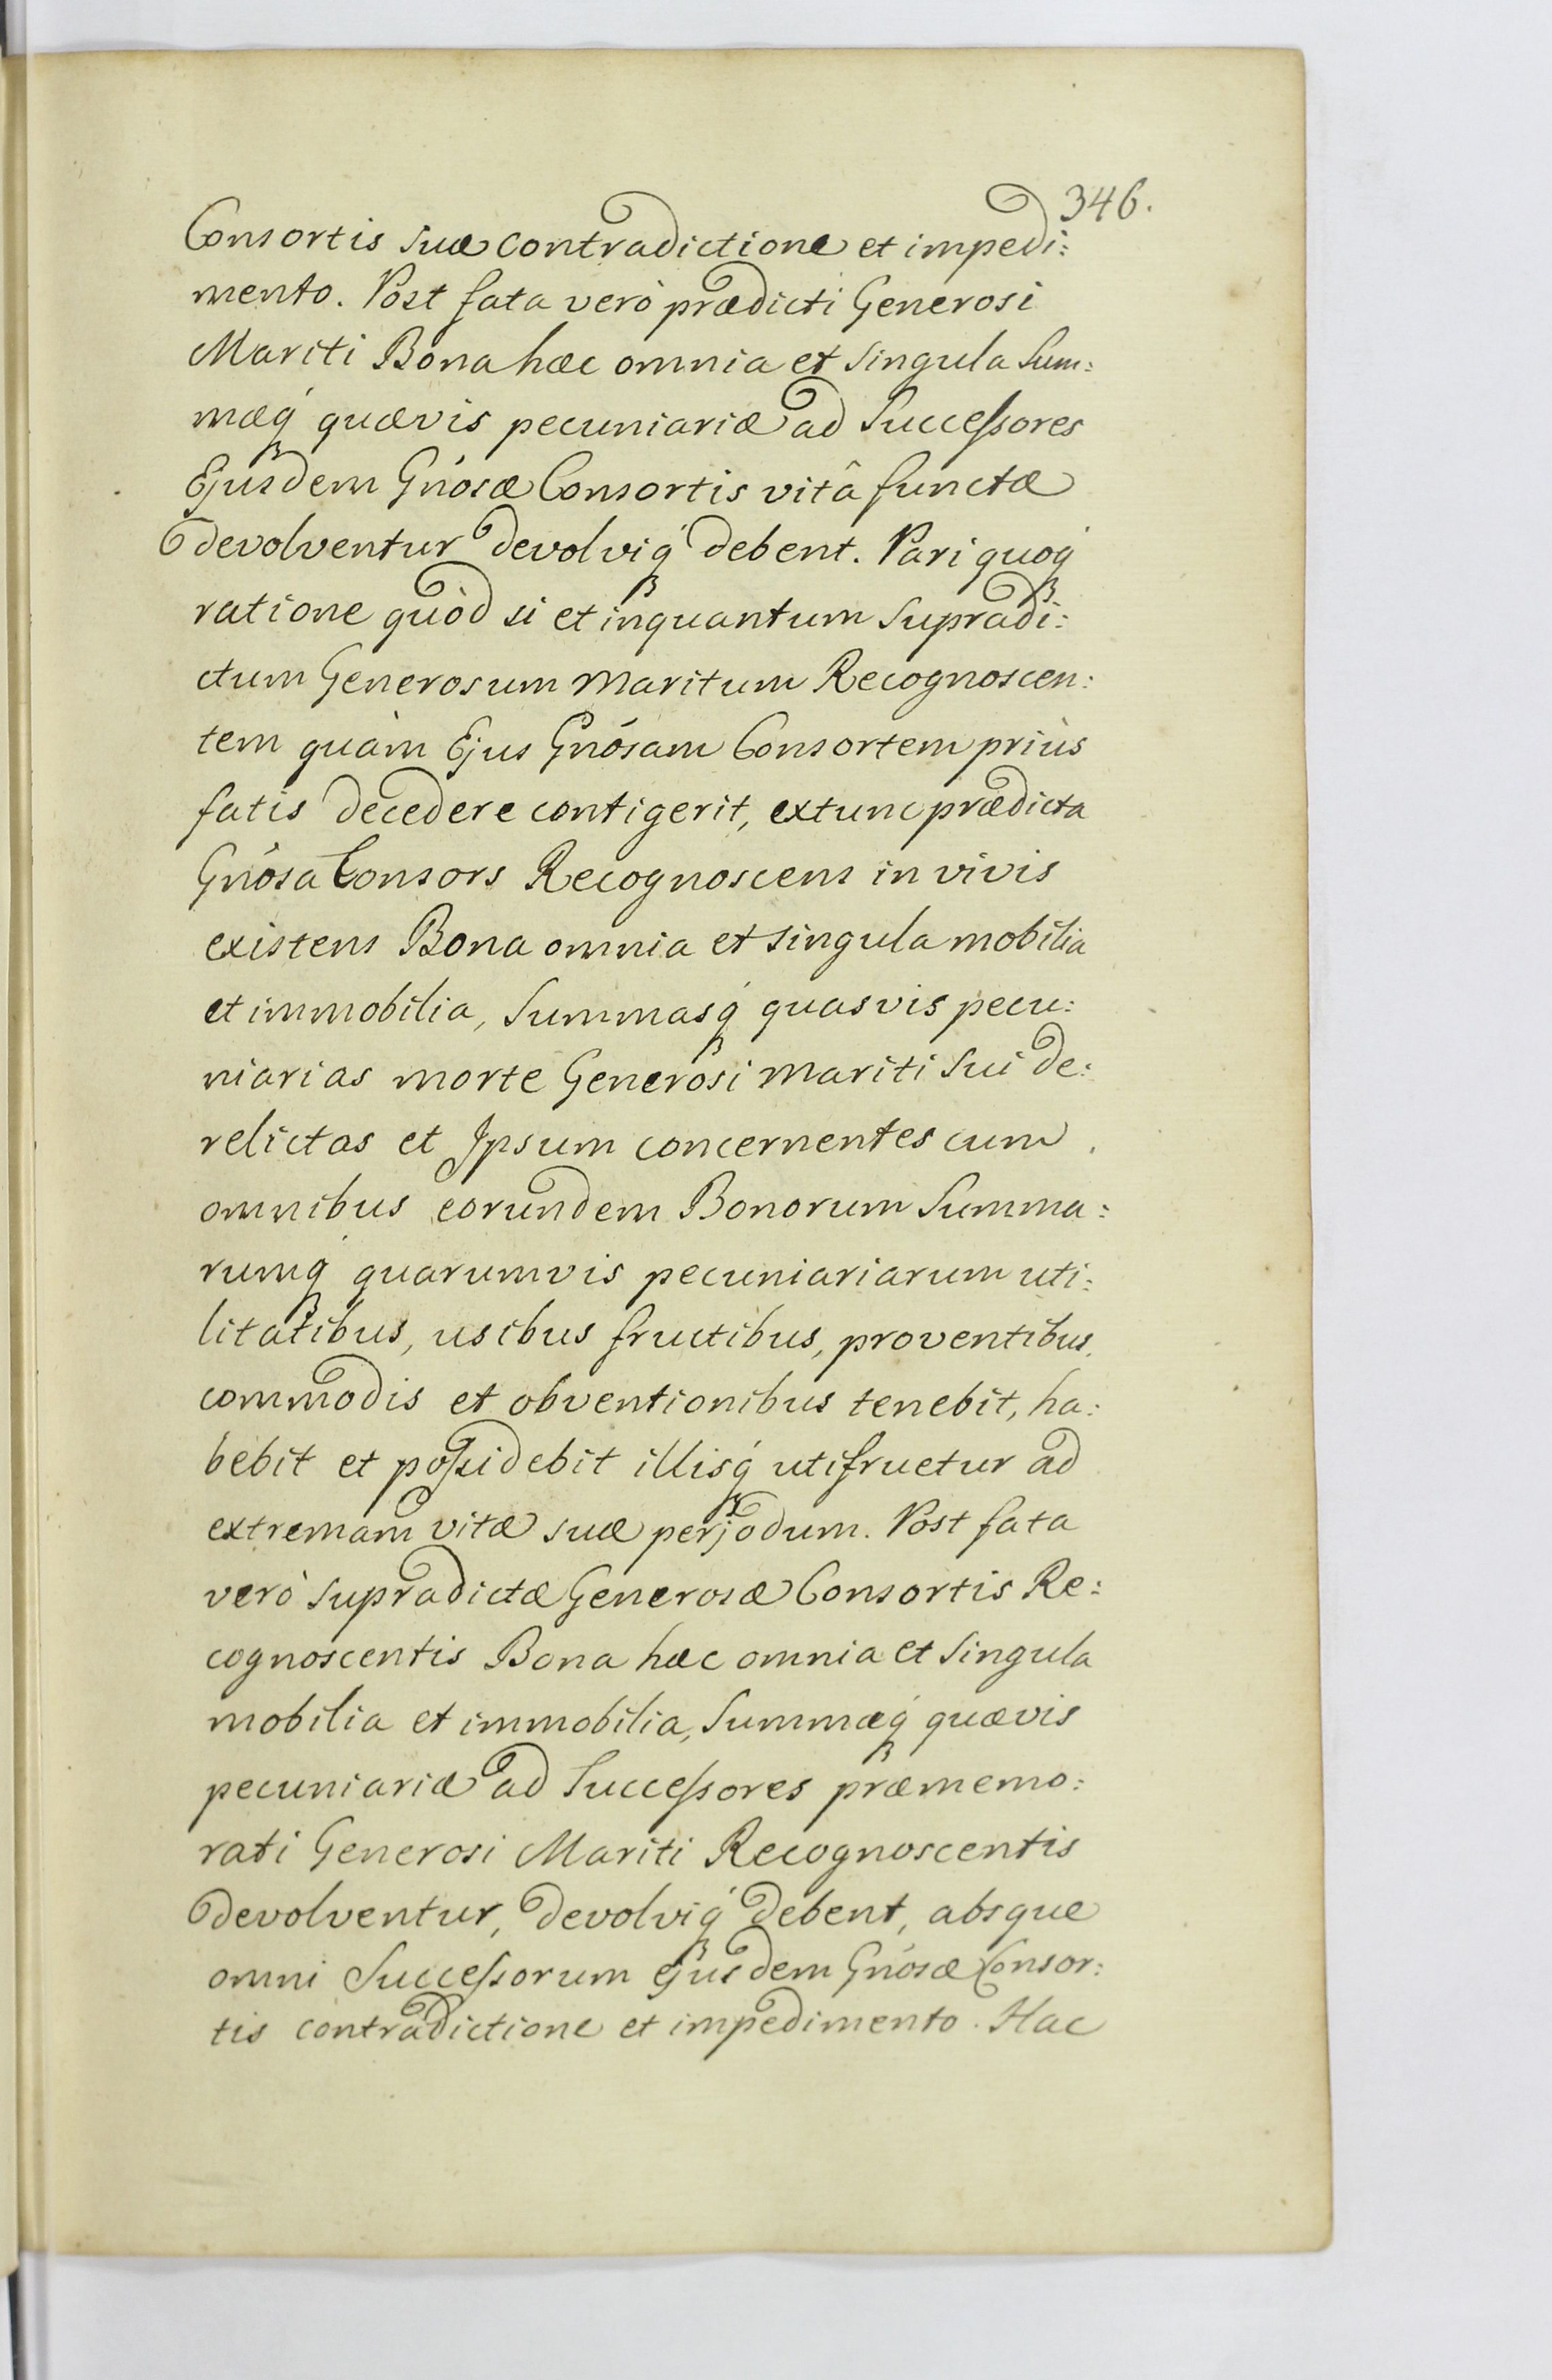 346.
Consortis suæ contradictione et impedi:
mento. Post fata verò prædicti Generosi
Mariti Bona hæc omnia et singula Sum:
mæq́ quævis pecuniariæ ad Successores
Ejusdem Gńosæ Consortis vitâ functæ
devolventur devolviq́ debent. Pari quoq́
ratione quòd si et inquantum supradi:
ctum Generosum Maritum Recognoscen:
tem quàm Ejus Gńosam Consortem priùs
fatis decedere contigerit, extunc prædicta
Gńosa Consors Recognoscens in vivis
existens Bona omnia et singula mobilia
et immobilia, Summasq́ quasvis pecu:
niarias morte Generosi Mariti sui de:
relictas et Ipsum concernentes cum
omnibus eorundem Bonorum Summa:
rumq́ quarumvis pecuniariarum uti:
litatibus, usibus fructibus, proventibus,
commodis et obventionibus tenebit, ha:
bebit et possidebit illisq́ utifruetur ad
extremam vitæ suæ perjodum. Post fata
verò supradictæ Generosæ Consortis Re:
cognoscentis Bona hæc omnia et singula
mobilia et immobilia, Summæq́ quævis
pecuniariæ ad Successores præmemo:
rati Generosi Mariti Recognoscentis
devolventur, devolviq́ debent, absque
omni Successorum ejusdem Gńosæ Consor:
tis contradictione et impedimento. Hac